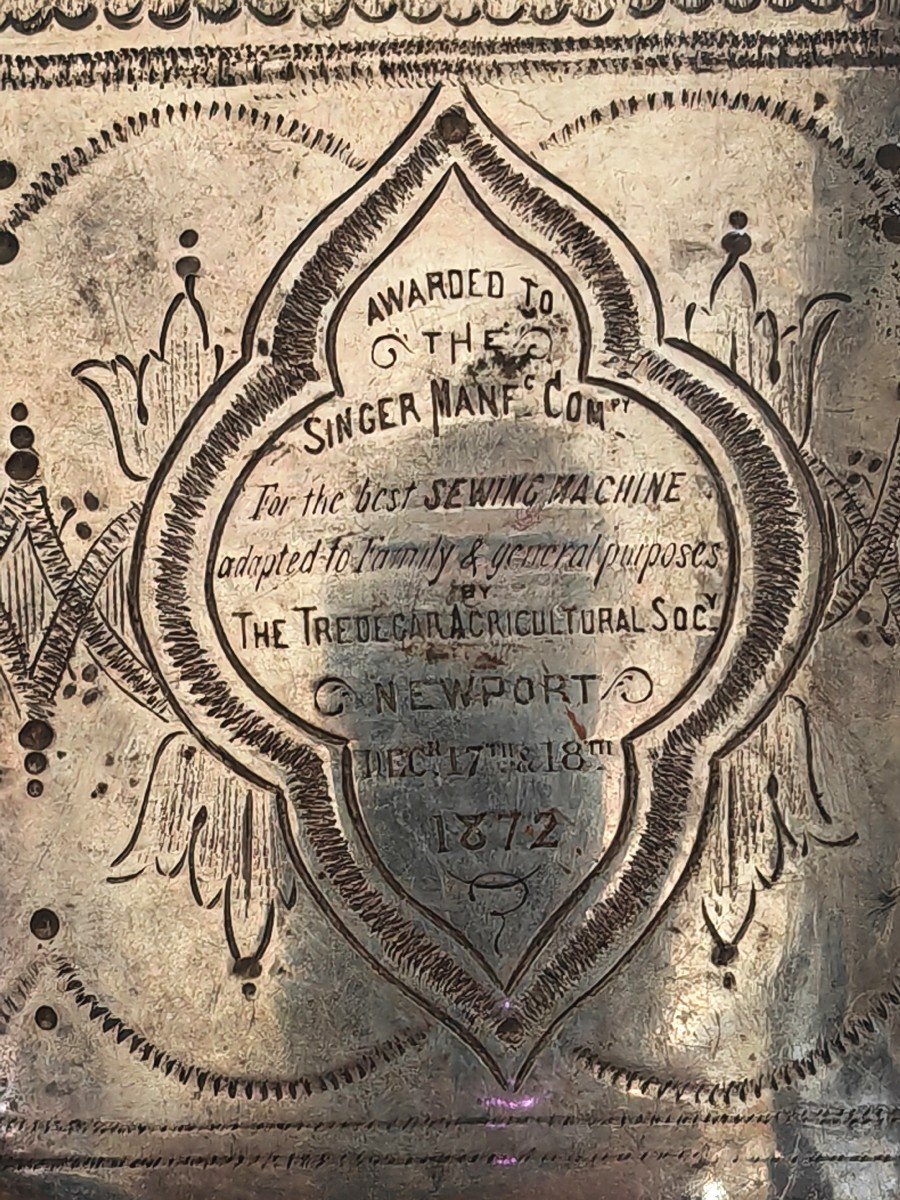 AWARDED TO
THE
SINGER MANFC COMPY
For the best SEWING MACHINE
adapted to Family & general purposes
BY
THE TREDEGAR AGRICULTURAL SOCY
NEWPORT
DECR. 17TH & 18TH
1872.